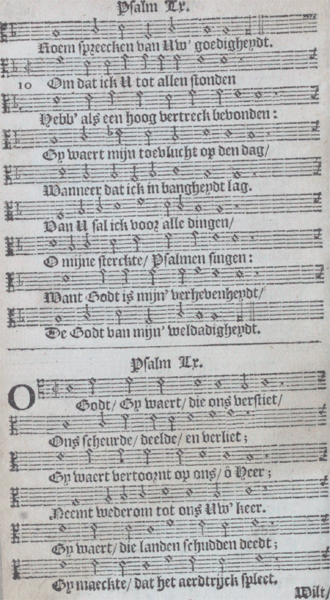 Psalm Lx.
Roem spreecken van Uw' goedigheydt.
10 Om dat ick U tot allen stonden
Hebb' als een hoog vertreck bevonden:
Gy waert mijn toevlucht op den dag/
Wanneer dat ick in bangheydt lag.
Van U sal ick voor alle dingen/
O mijne sterckte/ Psalmen singen:
Want Godt is mijn' verhevenheydt/
De Godt van mijn' weldadigheydt.
Psalm Lx.
O Godt/ Gy waert/ die ons verstiet/
Ons scheurde/ deelde/ en verliet;
Gy waert vertoornt op ons/ ô Heer;
Neemt wederom tot ons Uw' keer.
Gy waert/ die landen schudden deedt;
Gy maeckte/ dat het aerdtrijck spleet.
Wilt